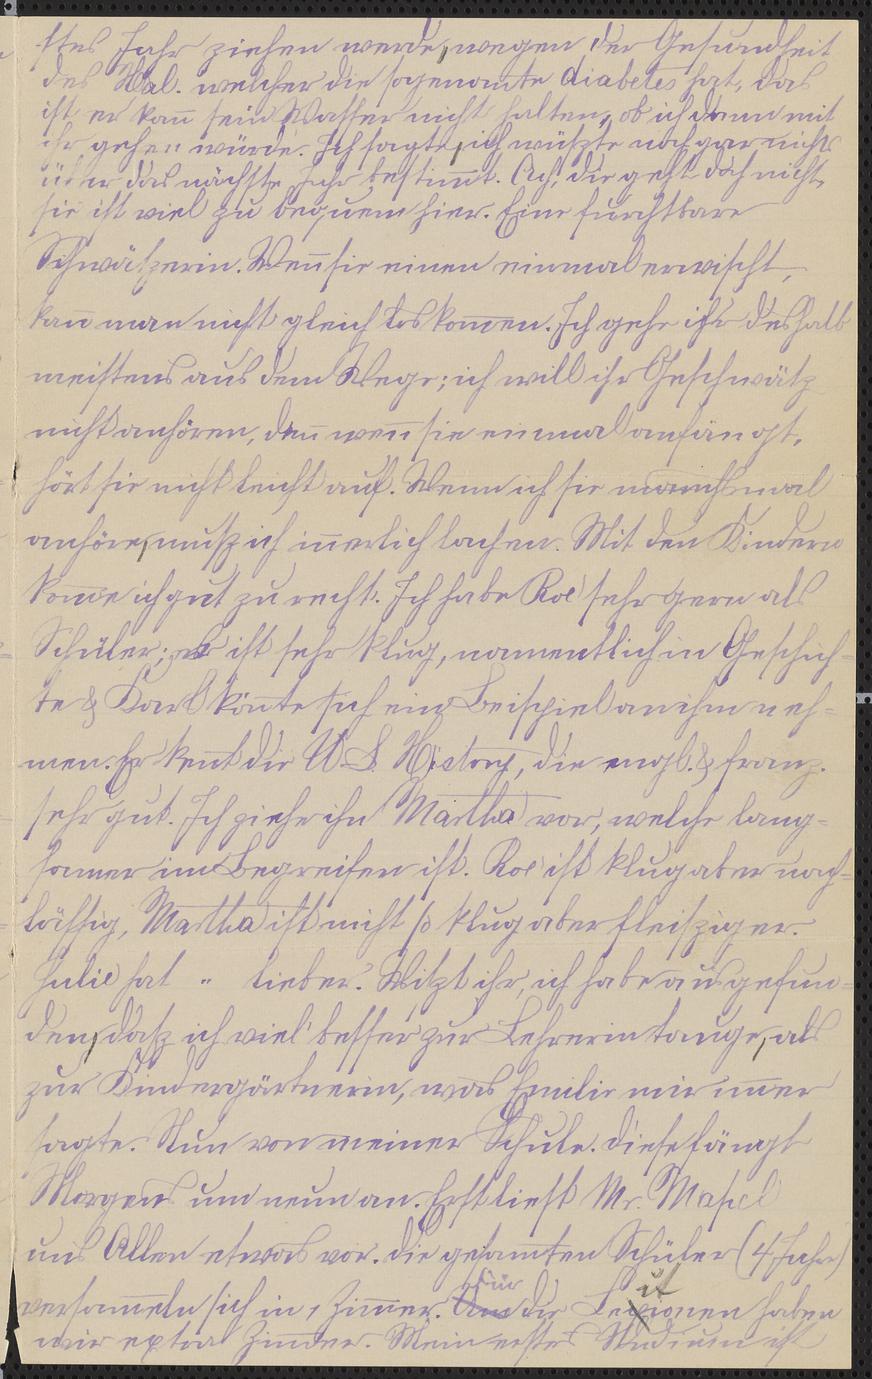 stes Jahr ziehen werde, wegen der Gesundheit
des Hal. welcher die sogenan̄te diabetes hat, das
ist er kan̄ sein Wasser nicht halten, ob ich dann mit
ihr gehen würde. Ich sagte, ich wüszte noch gar nichts
über das nächste Jahr bestim̄t. Ach, die geht doch nicht,
sie ist viel zu bequem hier. Eine furchtbare
Schwätzerin. Wen̄ sie einen einmal erwischt,
kan̄ man nicht gleich los kom̄en. Ich gehe ihr deshalb
meistens aus dem Wege; ich will ihr Geschwätz
nicht anhören, den̄ wen̄ sie einmal anfängt,
hört sie nicht leicht auf. Wenn ich sie manchmal
anhöre, musz ich in̄erlich lachen. Mit den Kindern
kom̄e ich gut zu recht. Ich habe Roe sehr gern als
Schüler; er ist sehr klug, namentlich in Geschich-
te & Karl kön̄te sich ein Beispiel an ihm neh-
men. Er ken̄t die U. S. History, die engl. & franz.
sehr gut. Ich ziehe ihn Martha vor, welche lang-
samer im Begreifen ist. Roe ist klug aber nach-
lässig, Martha ist nicht so klug aber fleisziger.
Julie hat " lieber. Wiszt ihr, ich habe ausgefun-
den, dasz ich viel besser zur Lehrerin tauge, als
zur Kindergärtnerin, was Emilie mir im̄er
sagte. Nun von meiner Schule. Diese fängt
Morgens um neun an. Erst liest Mr.
uns Allen etwas vor. Die gesam̄ten Schüler (4 Jahre)
versam̄eln sich in 1 Zim̄er. für die haben
wir extra Zim̄er. Mein erstes Studium ist